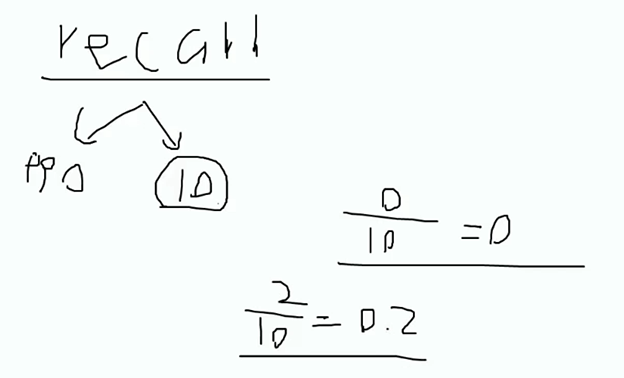 recall
990 10
0/10 = 0
2/10 = 0.2